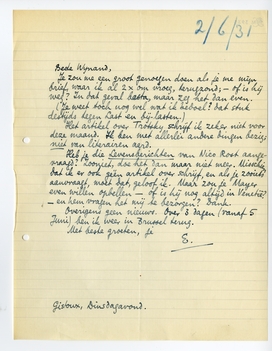 2/6/31
Bede Wijnand,
Je zou me een groot genoegen doen als je me mijn
brief, waar ik al 2 x om vroeg, terugzond; - of is hij
weg? In dat geval basta, maar zeg het dan even.
(Je weet toch nog wel wat ik bedoel? dat stuk
destijds tegen Last en bij-lasten.)
Het artikel over Trotsky schrijf ik zeker niet voor
deze maand. Ik ben met allerlei andere dingen bezig,
niet van literairen aard.
Heb je die Levensberichten van Nico Rost aange-
vraagd? Zoo niet, doe het dan maar niet meer. Misschien
dat ik er ook géén artikel over schrijf, en als je zooiets
aanvraagt, moet dat, geloof ik. Maar zou je Mayer
even willen opbellen - of is hij nog altijd in Venetië?
- en hem vragen het mij te bezorgen? Dank.
Overigens geen nieuws. Over 3 dagen (vanaf 5
Juni) ben ik weer in Brussel terug.
Met beste groeten, je
E.
Gistoux, Dinsdagavond.